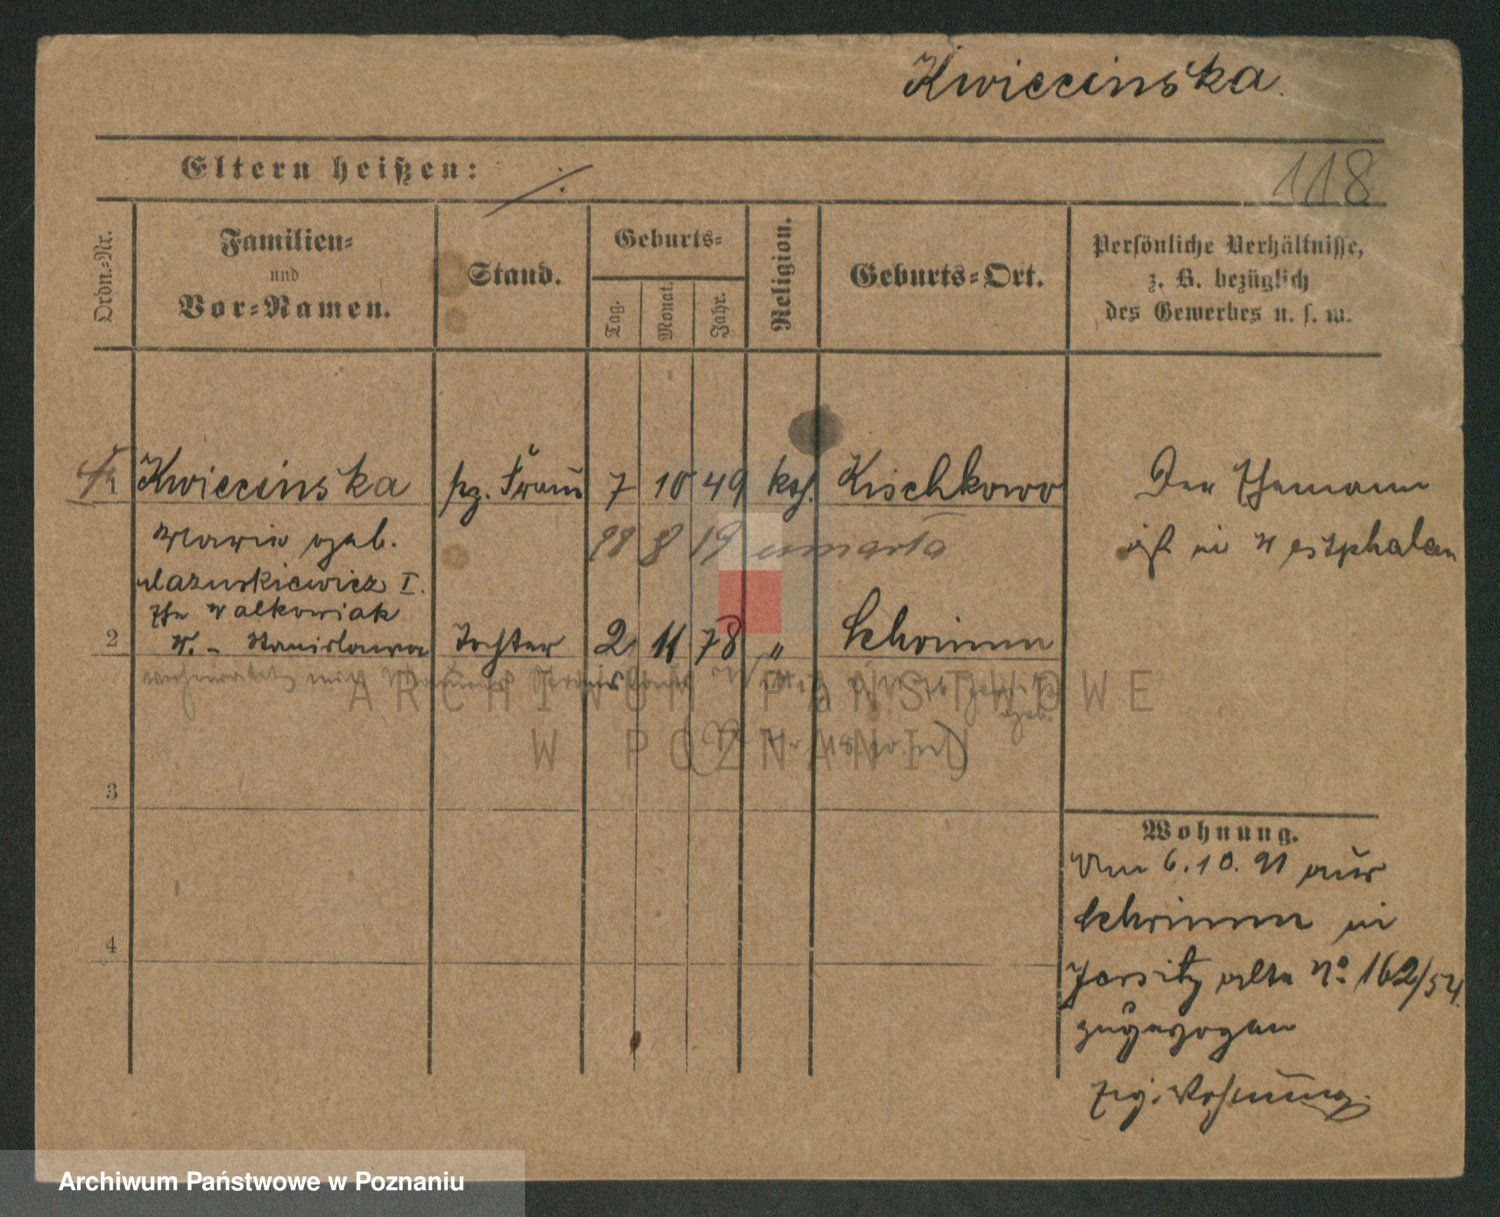 Kwiecinska.
Eltern heißen: ./.
118
Ordn.-Nr.
Familien-
und
Vor-Namen.
Stand.
Geburts-
Tag.
Monat.
Jahr.
Religion.
Geburts-Ort.
Persönliche Verhältnisse,
z. B. bezüglich
des Gewerbes u. s. w.
1 Kwiecinska sep. Frau 7 10 49 kath. Kischkowo
Der Ehemann
Maria geb.
8 19 umarła
ist in Westphalen
Mazurkiewicz I.
Ehe Walkowiak
2 K. - Stanislawa Tochter 2 11 78 " Schrimm
verheiratet mit
geb.
ARCHIWUM PAŃSTWOWE
W POZNANIU
3
4
Wohnung.
Am 6.10.91 aus
Schrimm in
Jersitz alte No 162/54.
zugezogen
Wohnung.
Archiwum Państwowe w Poznaniu